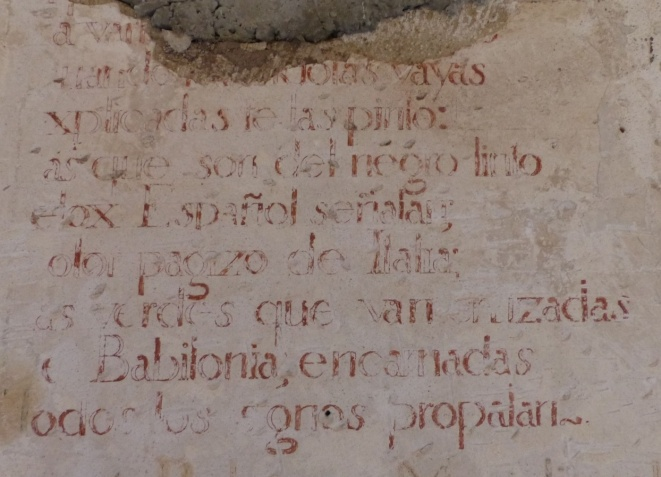 a van
olas vayas
xplicadas te las pinto:
as que son del negro tinto
elox Español señalan;
olor pagizo de Italia;
as verdes que van cruzadas
e Babilonia; encarnadas
odos los signos propalan